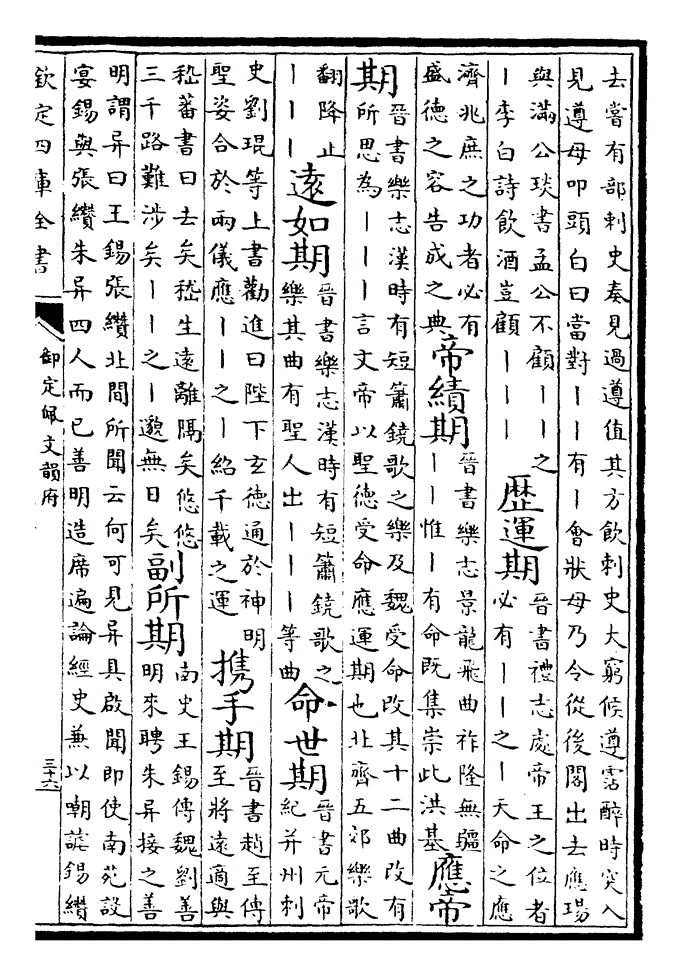 去嘗有部刺史奏見過遵值其方飲刺史大窮候遵霑醉時突入
見遵母叩頭白曰當對丨丨有丨會狀母乃令從後閤出去應瑒
與滿公琰書孟公不顧丨丨之
丨李白詩飲酒豈顧丨丨丨
歴運期
晉書禮志處帝王之位者
必有丨丨之丨天命之應
濟兆庶之功者必有
盛德之容告成之典
帝績期
晉書樂志景龍飛曲祚隆無疆
丨丨惟丨有命既集崇此洪基
應帝
期
晉書樂志漢時有短簫鐃歌之樂及魏受命改其十二曲改有
所思為丨丨丨言文帝以聖德受命應運期也北齊五郊樂歌
翻降止
丨丨丨
遠如期
晉書樂志漢時有短簫鐃歌之
樂其曲有聖人出丨丨丨等曲
命世期
晉書元帝
紀并州刺
史劉琨等上書勸進曰陛下玄德通於神明
聖姿合於兩儀應丨丨之丨紹千載之運
攜手期
晉書趙至傳
至將遠適與
嵇蕃書曰去矣嵇生遠離隔矣悠悠
三千路難涉矣丨丨之丨邈無日矣
副所期
南史王錫傳魏劉善
明來聘朱异接之善
明謂异曰王錫張纘北間所聞云何可見异具啟聞即使南苑設
宴錫與張纘朱异四人而已善明造席遍論經史兼以嘲謔錫纘
欽定四庫全書
御定佩文韻府
三十六